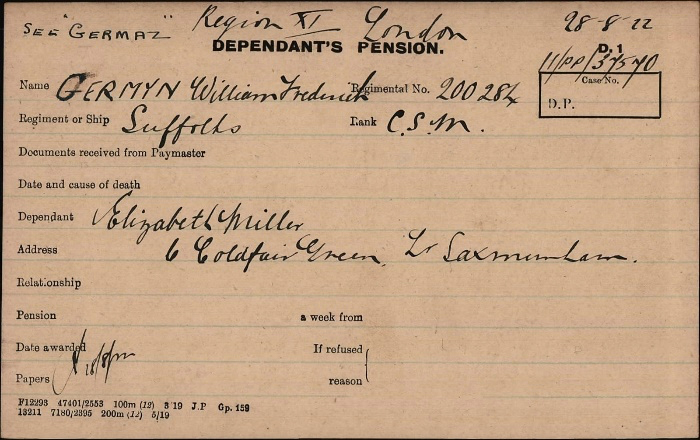 SEE "GERMAZ" Region XI London 28-8-22
DEPENDANT'S PENSION. D.1
11/PP/37570
Name GERMYN William Frederick Regimental No. 200284 Case No.
D.P.
Regiment or Ship Suffolks Rank C.S.M.
Documents received from Paymaster
Date and cause of death
Dependant Elizabeth Miller
Address 6 Coldfair Green, Nr Saxmundham.
Relationship
Pension a week from
Date awarded If refused
Papers reason
F12293 47401/2553 100m (12) 3 19 J.P Gp. 159
13211 7180/2395 200m (12) 5/19